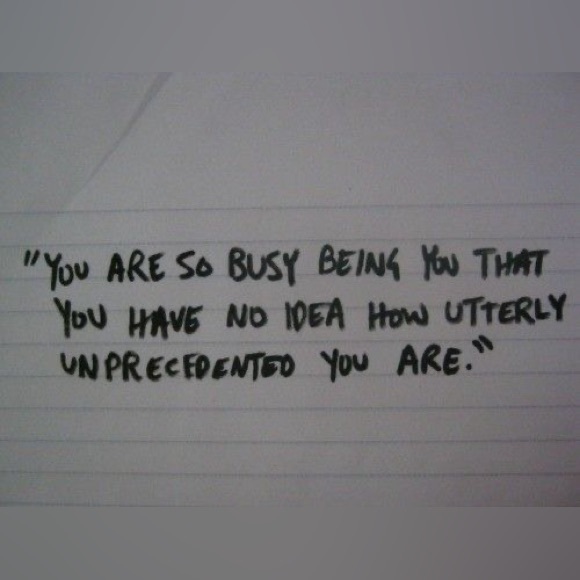 "YOU ARE SO BUSY BEING YOU THAT
YOU HAVE NO IDEA HOW UTTERLY
UNPRECEDENTED YOU ARE."